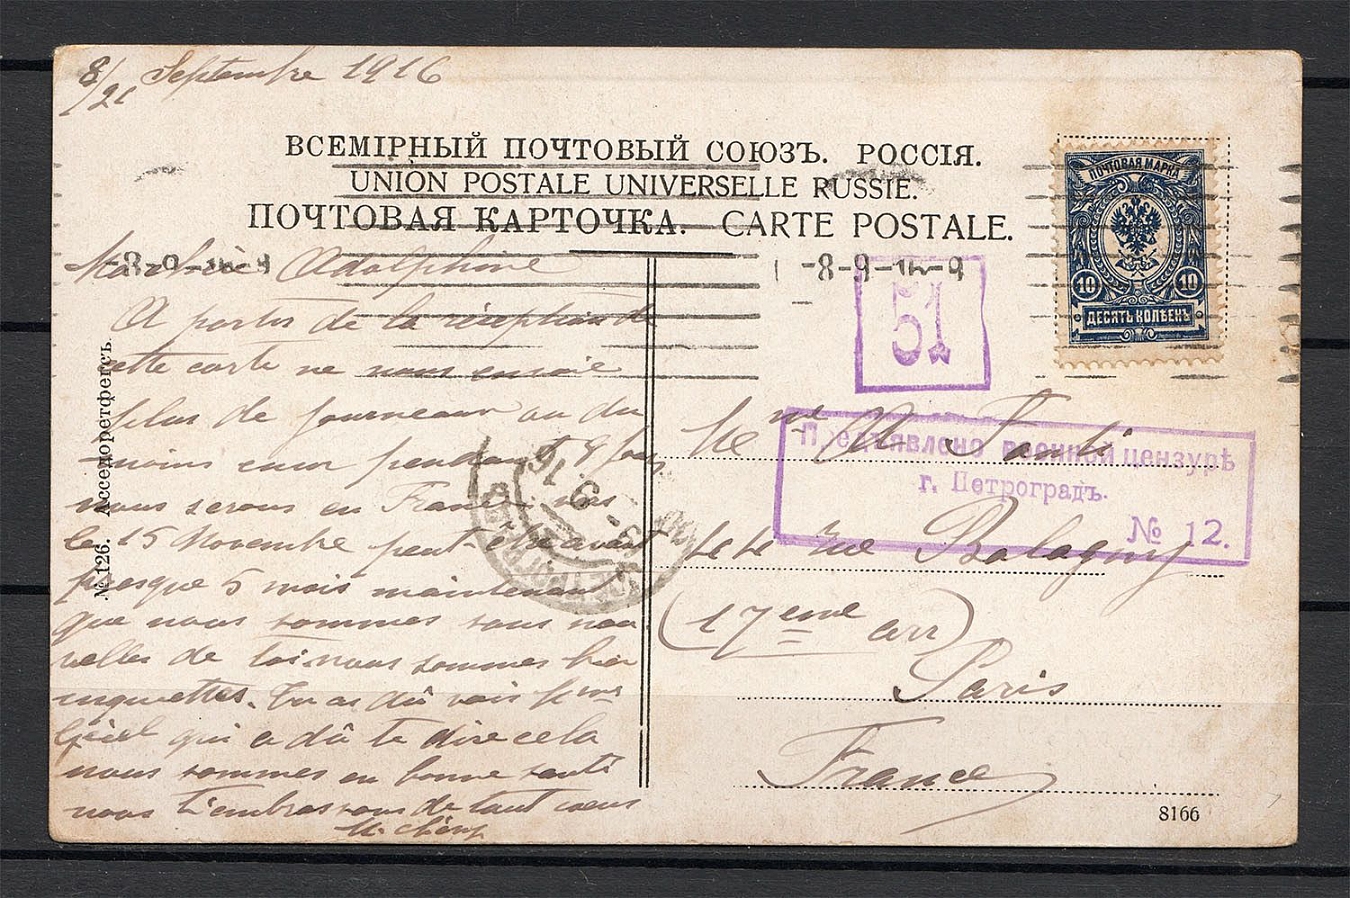 8/21 Septembre 1916
ВСЕМІРНЫЙ ПОЧТОВЫЙ СОЮЗЪ. РОССІЯ.
UNION POSTALE UNIVERSELLE RUSSIE.
ПОЧТОВАЯ КАРТОЧКА. CARTE POSTALE.
ПОЧТОВАЯ МАРКА
10 10
ДЕСЯТЬ КОПѢЕКЪ
-8-9-16-9
-8-9-16-9
51
Предъявлено военной цензурѣ
г. Петроградъ.
№ 12.
Ma chère Adolphine
A partir de la réception de
cette carte ne nous envoie
plus de journeaux ou du
moins
nous serons en France
le 15 Novembre peut-être avant
presque 5 mois maintenant
que nous sommes sans nou
velles de toi nous sommes bien
inquiettes. Tu as dû voir
qui a dû te dire cela
nous sommes en bonne santé
nous t'embrassons de tout coeur
Mme
rue Balagny
(17eme arr)
Paris
France
№ 126.
8166